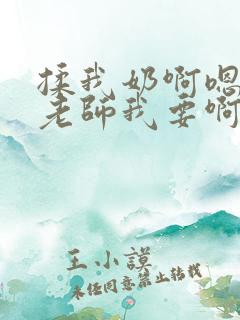 揉我奶啊嗯
老师我要啊
王小谟
未经同意禁止转载